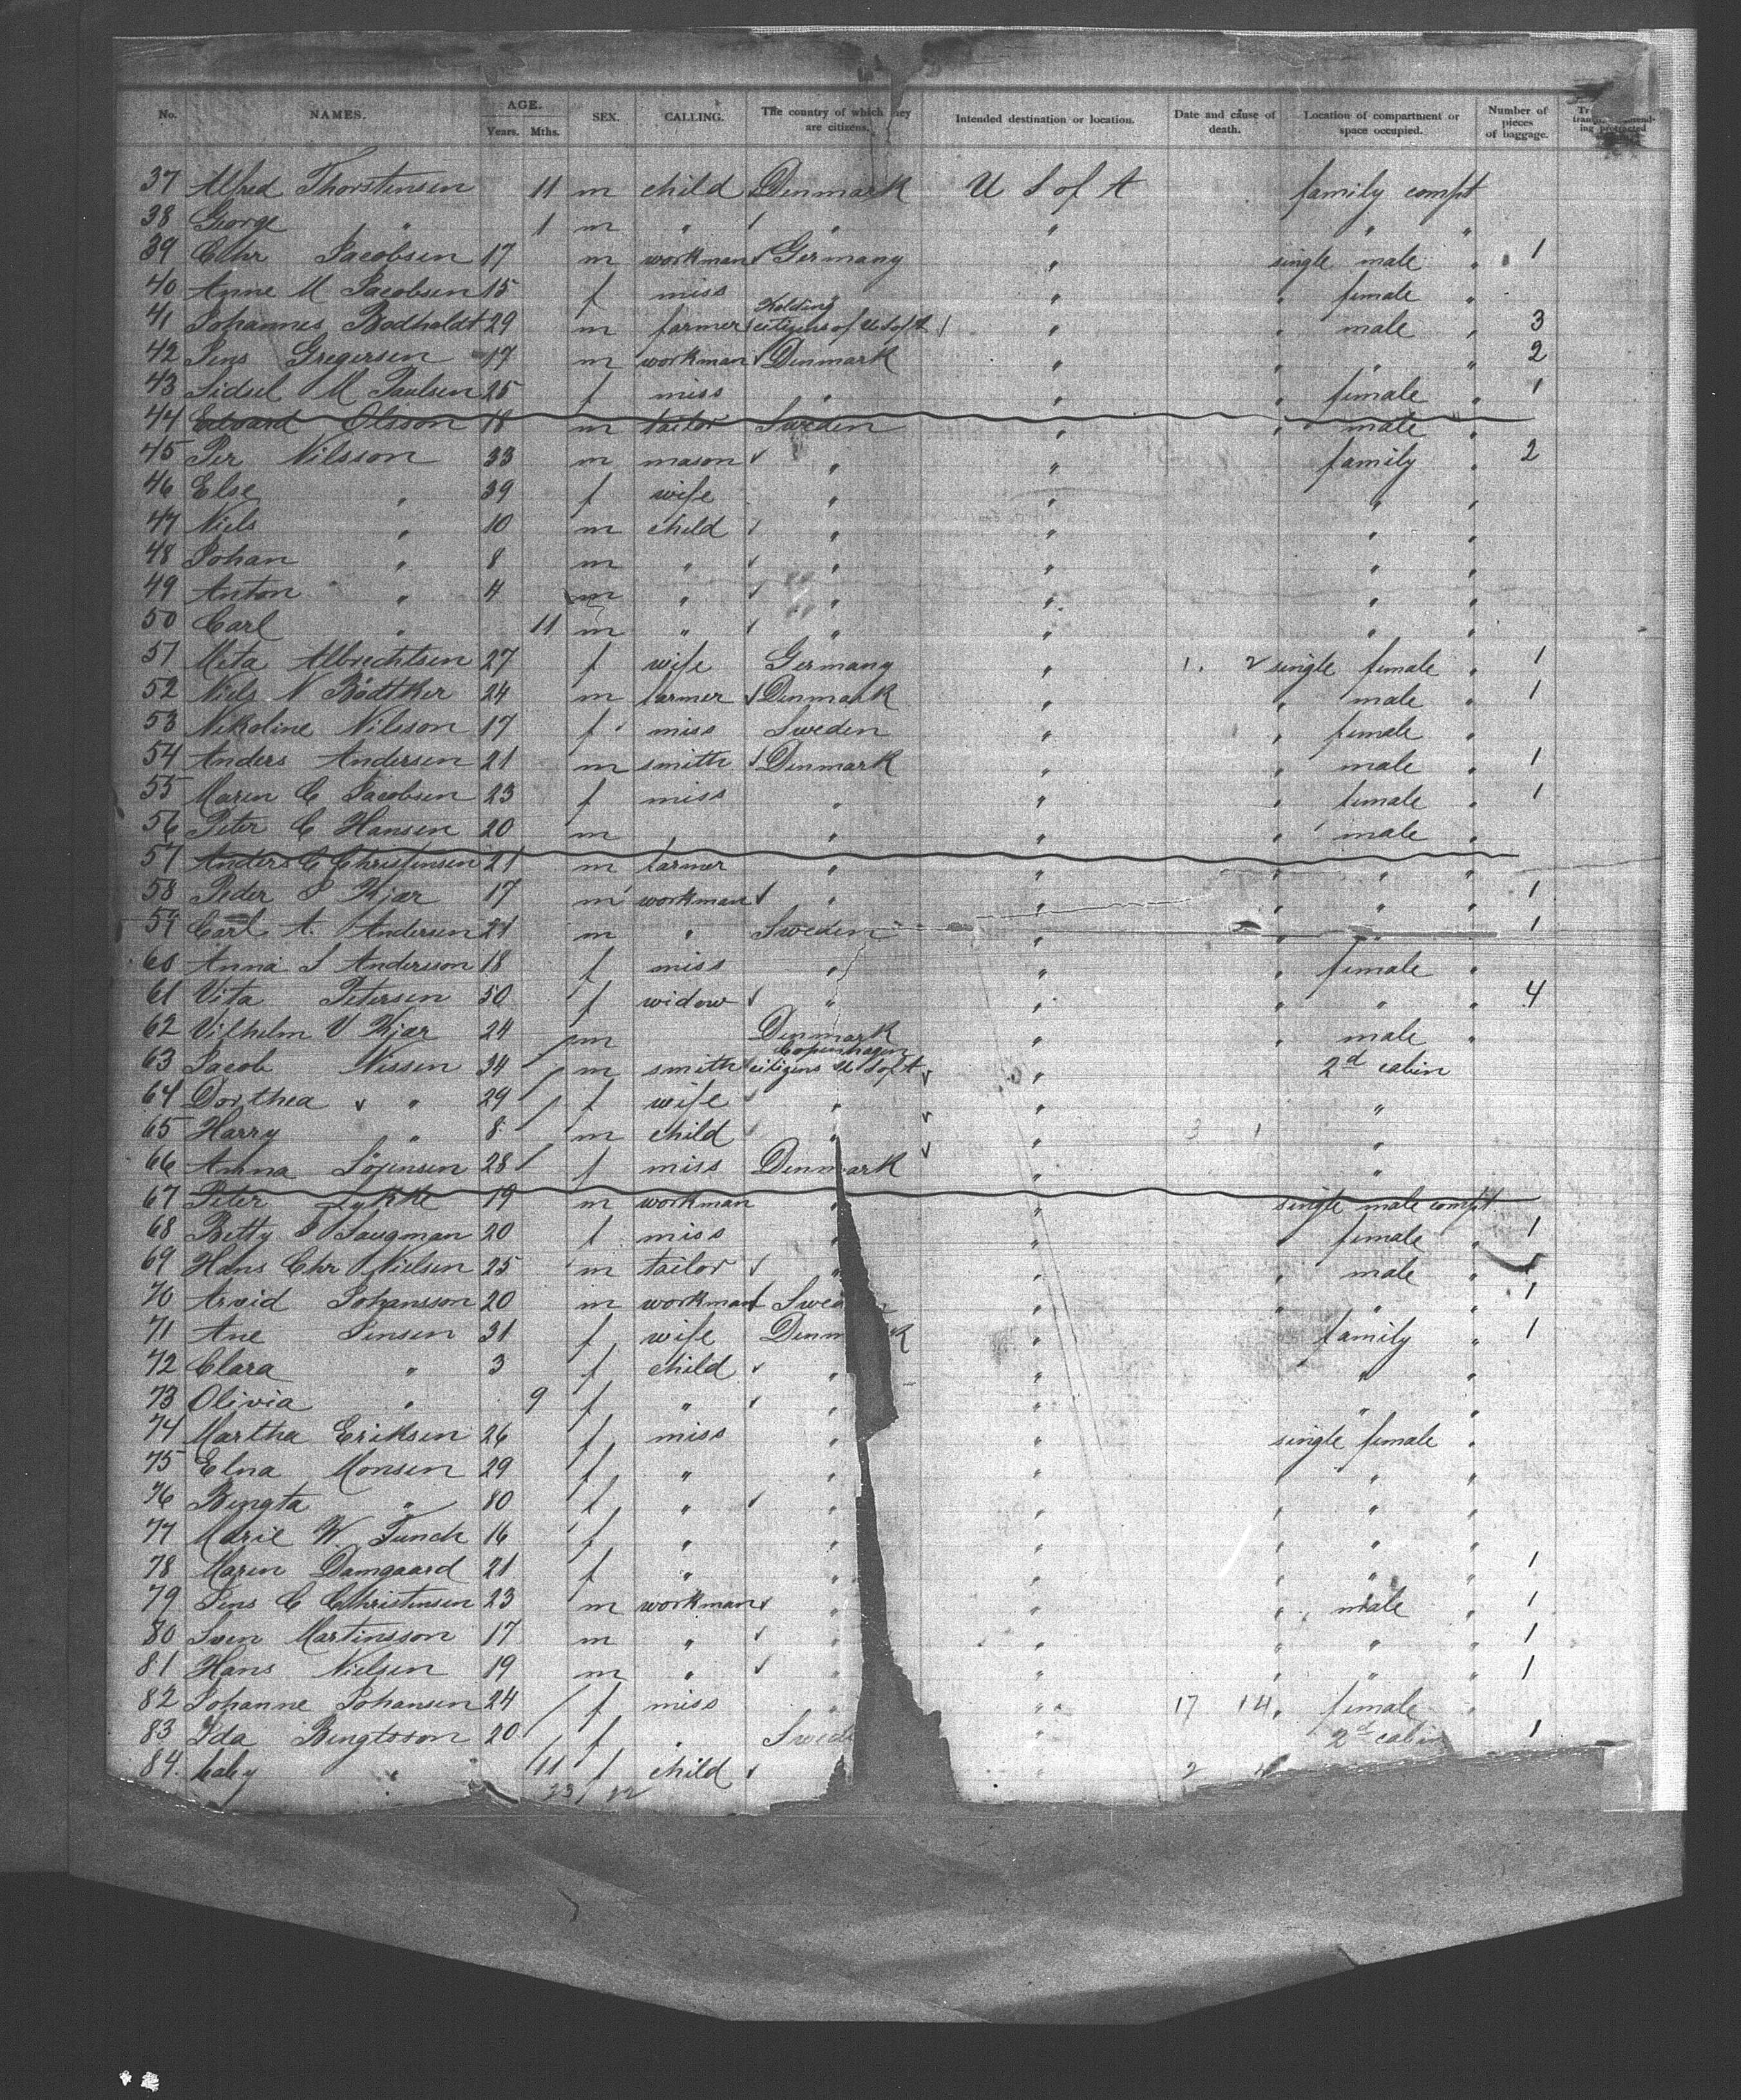 No. NAMES. AGE. Years. Mths. SEX. CALLING. The country of which they are citizens. Intended destination or location. Date and cause of death. Location of compartment or space occupied. Number of pieces of baggage.
37 Alfred Thorstensen 11 m child Denmark U S of A family compt
38 George " 1 m " " " " "
39 Chr Jacobsen 17 m workman Germany " single male " 1
40 Anne M Jacobsen 15 f miss " " female "
41 Johannes Bodholdt 29 m farmer Kolding citizens of U S of A " " male " 3
42 Jens Gregersen 17 m workman Denmark " " " " 2
43 Sidsel M Paulsen 25 f miss " " " female " 1
44 Edvard Olsson 18 m tailor Sweden " " male "
45 Per Nilsson 33 m mason " " family " 2
46 Else " 39 f wife " " " "
47 Niels " 10 m child " " " "
48 Johan " 8 m " " " " "
49 Anton " 4 m " " " " "
50 Carl " 11 m " " " " "
51 Meta Albrechtsen 27 f wife Germany " 1. 2 single female " 1
52 Niels N Bödtker 24 m farmer Denmark " " male " 1
53 Nikoline Nilsson 17 f miss Sweden " " female "
54 Anders Andersen 21 m smith Denmark " " male " 1
55 Maren C Jacobsen 23 f miss " " " female " 1
56 Peter C Hansen 20 m " " " " male "
57 Anders C Christensen 21 m farmer " " " " "
58 Peder S Kjær 17 m workman " " " " " 1
59 Carl A. Andersen 21 m " Sweden " " " 1
60 Anna S Anderson 18 f miss " " " female "
61 Vita Petersen 50 f widow " " " " 4
62 Vilhelm V Kjær 24 m Denmark " " male "
63 Jacob Nissen 34 m smith Copenhagen citizens U S of A " 2d cabin
64 Dorthea " 29 f wife " " "
65 Harry " 8 m child " " 3 1 "
66 Anna Sörensen 28 f miss Denmark " "
67 Peter Lykke 19 m workman " " single male compt
68 Betty S Saugman 20 f miss " " " female " 1
69 Hans Chr Nielsen 25 m tailor " " " male " 1
70 Arvid Johansson 20 m workman Swe n " " " " 1
71 Ane Jensen 31 f wife Denm k " family " 1
72 Clara " 3 f child " " " "
73 Olivia " 9 f " " " " "
74 Martha Eriksen 26 f miss " " single female "
75 Elna Monsen 29 f " " " " "
76 Bengta " 80 f " " " " "
77 Marie W. Funch 16 f " " " " " "
78 Maren Damgaard 21 f " " " " " " 1
79 Jens C Christensen 23 m workman " " " male " 1
80 Sven Martinsson 17 m " " " " " " 1
81 Hans Nielsen 19 m " " " " " " 1
82 Johanne Johansen 24 f miss " " 17 14 " female "
83 Ida Bengtsson 20 f " Swede " 2d cabin 1
84. baby " 11 f child " 2
23/22